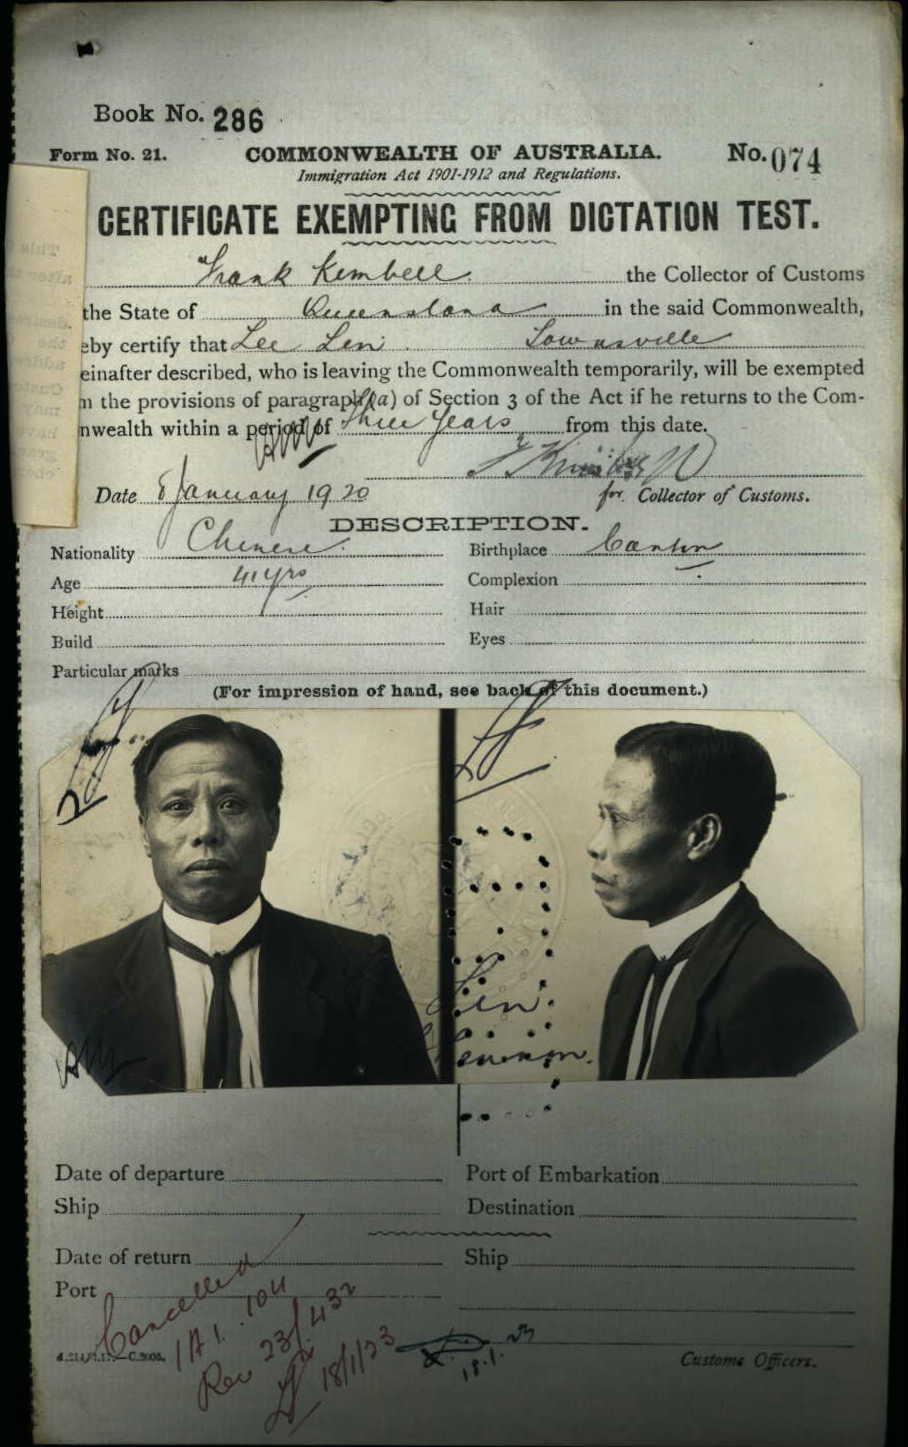 Book No. 286
Form No. 21. COMMONWEALTH OF AUSTRALIA. No. 074
Immigration Act 1901-1912 and Regulations.
CERTIFICATE EXEMPTING FROM DICTATION TEST.
Frank Kimbell the Collector of Customs
the State of Queensland in the said Commonwealth,
eby certify that Lee Len Townsville
einafter described, who is leaving the Commonwealth temporarily, will be exempted
m the provisions of paragraph (a) of Section 3 of the Act if he returns to the Com-
nwealth within a period of three years from this date.
Date 8 January 1920 for Collector of Customs.
DESCRIPTION.
Nationality Chinese. Birthplace Canton
Age 41 yrs Complexion
Height Hair
Build Eyes
Particular marks
(For impression of hand, see back of this document.)
Len
Date of departure Port of Embarkation
Ship Destination
Date of return Ship
Port
Cancelled
1A1. 104
Rev 23/432
18/1/23
18.1.23
Customs Officers.